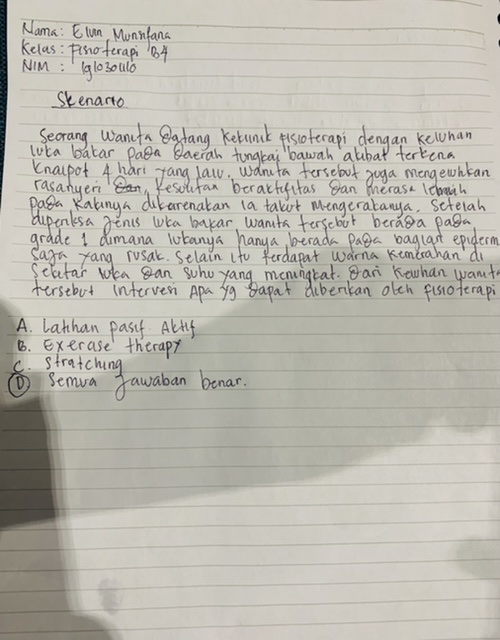 Nama: Elvin Munifana
Kelas: Fisioterapi B4
NIM : 1910301110
Skenario
Seorang wanita datang keklinik fisioterapi dengan keluhan
luka bakar pada daerah tungkai bawah akibat terkena
knalpot 4 hari yang lalu. wanita tersebut juga mengeluhkan
rasanyeri dan kesulitan beraktifitas dan merasa lemah
pada kakinya dikarenakan ia takut mengerakanya. Setelah
diperiksa jenis luka bakar wanita tersebut berada pada
grade 1 dimana lukanya hanya berada pada bagian epiderm
saja yang rusak. Selain itu terdapat warna kemerahan di
sekitar luka dan suhu yang meningkat. Dari keluhan wanita
tersebut intervesi apa yg dapat diberikan oleh fisioterapi
A. Latihan pasif Aktif
B. Exerase therapy
C. Stratching
D Semua jawaban benar.